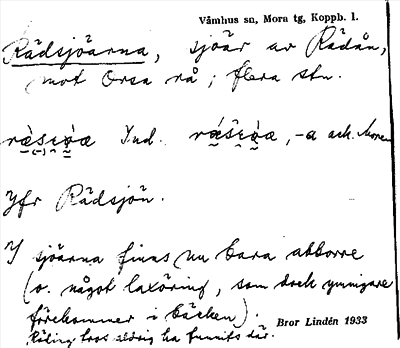 Våmhus sn, Mora tg, Koppb. l.
Rädsjöarna, sjöar av Rädån,
mot Orsa rå; flera stn.
Ind. , -a ack. Moren
Jfr Rädsjön.
I sjöarna finns nu bara abborre
(o. något laxöring, som dock ymnigare
förekommer i bäcken).
Röling tors aldrig ha funnits där.
Bror Lindén 1933